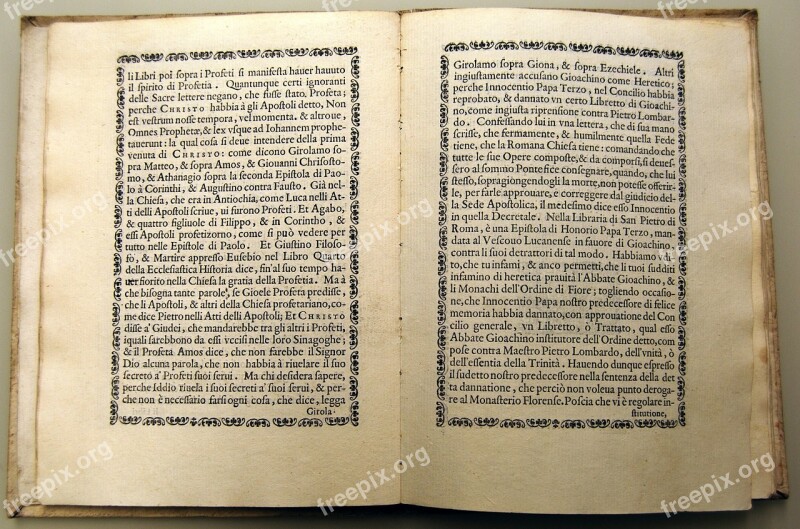 li Libri poi sopra i Profeti si manifesta hauer hauuto
il spirito di Profetia. Quantunque certi ignoranti
delle Sacre lettere negano, che fusse stato, Profeta;
perche CHRISTO habbia à gli Apostoli detto, Non
est vestrum nosse tempora, vel momenta. & altroue,
Omnes Prophetæ, & lex vsque ad Iohannem prophe-
tauerunt: la qual cosa si deue intendere della prima
venuta di CHRISTO: come dicono Girolamo so-
pra Matteo, & sopra Amos, & Giouanni Chrisosto-
mo, & Athanagio sopra la seconda Epistola di Pao-
lo à Corinthi, & Augustino contra Fausto. Già nel-
la Chiesa, che era in Antiochia, come Luca nelli At-
ti delli Apostoli scriue, ui furono Profeti. Et Agabo,
& quattro figliuole di Filippo, & in Corintho, &
essi Apostoli profetizorno, come si può vedere per
tutto nelle Epistole di Paolo. Et Giustino Filoso-
fo, & Martire appresso Eusebio nel Libro Quarto
della Ecclesiastica Historia dice, fin'al suo tempo ha-
uer fiorito nella Chiesa la gratia della Profetia. Ma à
che bisogna tante parole, se Gioele Profeta predisse,
che li Apostoli, & altri della Chiesa profetariano, co-
me dice Pietro nelli Atti delli Apostoli; Et CHRISTO
disse a' Giudei, che mandarebbe tra gli altri i Profeti,
iquali sarebbono da essi vccisi nelle loro Sinagoghe;
& il Profeta Amos dice, che non farebbe il Signor
Dio alcuna parola, che non habbia à riuelare il suo
secreto a' Profeti suoi serui. Ma chi desidera sapere,
perche Iddio riuela i suoi secreti a' suoi serui, & per-
che non è necessario farsi ogni cosa, che dice, legga
Girola-
Girolamo sopra Giona, & sopra Ezechiele. Altri
ingiustamente accusano Gioachino come Heretico;
perche Innocentio Papa Terzo, nel Concilio habbia
reprobato, & dannato vn certo Libretto di Gioachi-
no, come ingiusta riprensione contra Pietro Lombar-
do. Confessando lui in vna lettera, che di sua mano
scrisse, che fermamente, & humilmente quella Fede
tiene, che la Romana Chiesa tiene: comandando che
tutte le sue Opere composte, & da comporsi, si deues-
sero al sommo Pontefice consegnare, quando, che lui
stesso, sopragiongendogli la morte, non potesse offerir-
le, per farle approuare, e correggere dal giudicio del-
la Sede Apostolica, il medesimo dice esso Innocentio
in quella Decretale. Nella Libraria di San Pietro di
Roma, è una Epistola di Honorio Papa Terzo, man-
data al Vescouo Lucanense in fauore di Gioachino,
contra li suoi detrattori di tal modo. Habbiamo vdi-
to, che tu infami, & anco permetti, che li tuoi sudditi
infamino di heretica prauità l'Abbate Gioachino, &
li Monachi dell'Ordine di Fiore; togliendo occasio-
ne, che Innocentio Papa nostro predecessore di felice
memoria habbia dannato, con approuatione del Con
cilio generale, vn Libretto, ò Trattato, qual esso
Abbate Gioachino institutore dell'Ordine detto, com
pose contra Maestro Pietro Lombardo, dell'vnità, ò
dell'essentia della Trinità. Hauendo dunque espresso
il sudetto nostro predecessore nella sentenza della det
ta dannatione, che perciò non voleua punto deroga-
re al Monasterio Florense. Poscia che vi è regolare in-
stitutione,
freepix.org
freepix.org
freepix.org
freepix.org
freepix.org
freepix.org
freepix.org
freepix.org
freepix.org